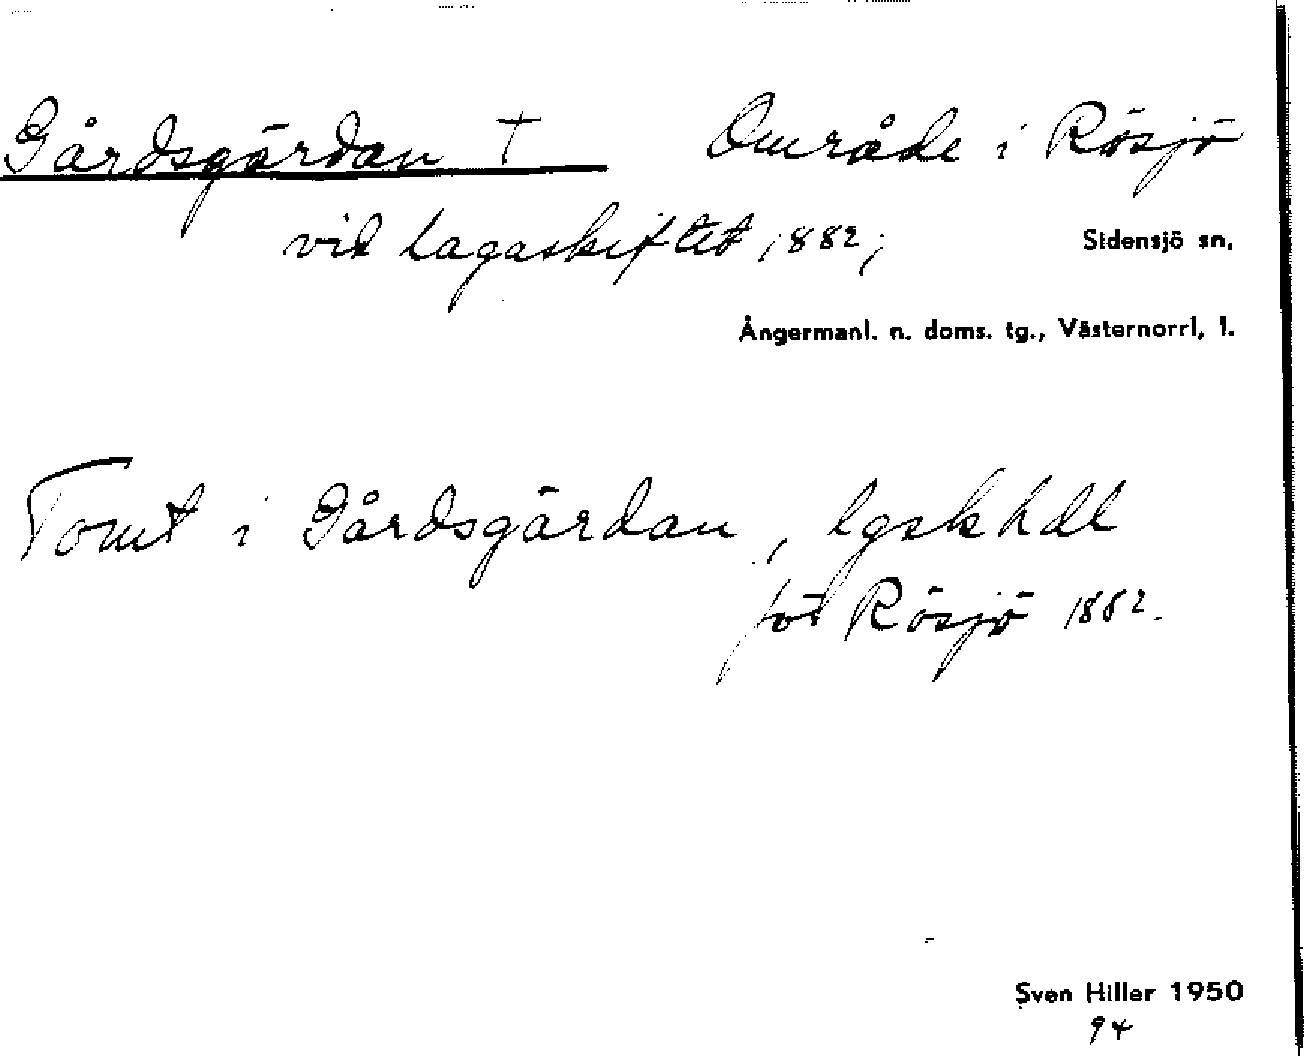 Gårdsgärdan † Område i Rösjö
vid Lagaskiftet 1882;
Sidensjö sn.
Ångermanl. n. doms. tg., Västernorrl. l.
Tomt i Gårdsgärdan, lgskhdl
för Rösjö 1882.
Sven Hiller 1950
94